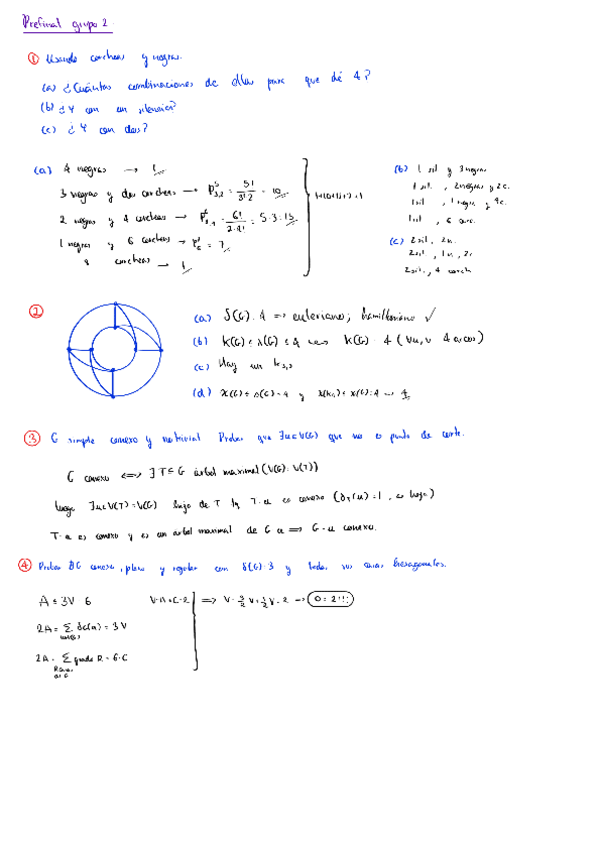 Prefinal grupo 2.
① Usando corcheas y negras.
(a) ¿Cuántas combinaciones de ellas para que dé 4?
(b) ¿Y con un silencio?
(c) ¿Y con dos?
(a) 4 negras → 1
3 negras y dos corcheas → P 5 3,2 = 5! / 3!2 = 10
2 negras y 4 corcheas → 6! / 2·4! = 5·3 = 15
1 negra y 6 corcheas → = 7
8 corcheas → 1
(b) 1 sil y 3 negras
1 sil, 2 negras y 2c.
1 sil, 1 negra y 4c.
1 sil, 6 corc.
(c) 2 sil, 2n.
2 sil, 1n, 2c
2 sil, 4 corch
②
(a) δ(G)=4 => euleriano; hamiltoniano ✓
(b) K(G) ≤ λ(G) ≤ 4 K(G)=4 (∀u,v 4 arcos)
(c) Hay un K3,3
(d) χ(G) ≤ Δ(G)=4 y χ(G)=4 → 4
③ G simple conexo y no trivial Probar que ∃u∈V(G) que no es punto de corte.
G conexo <=> ∃ T ≤ G árbol maximal (V(G)=V(T))
luego ∃u∈V(T)=V(G) hoja de T tq T-u es conexo (δT(u)=1, es hoja)
T-u es conexo y es un árbol maximal de G-u => G-u conexo.
④ Probar G conexo, plano y regular con δ(G)=3 y todas sus caras hexagonales.
A ≤ 3V-6
V-A+C=2 => V-3/2V+1/2V=2 → 0=2!!!
2A = Σ δG(u) = 3V
2A = Σ grado R = 6·C